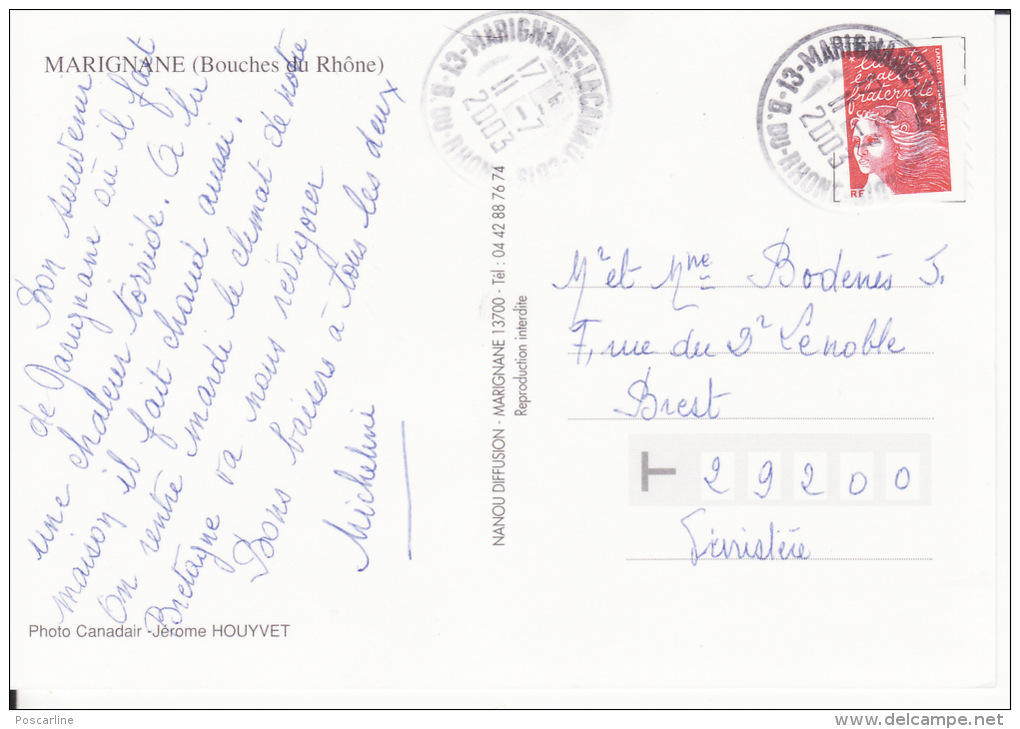 MARIGNANE (Bouches du Rhône)
Bon souvenir
de Marignane où il fait
une chaleur torride. A la
maison il fait chaud aussi.
On rentre mardi le climat de notre
Bretagne va nous revigorer
Bons baisers à tous les deux
Micheline
Photo Canadair -Jérome HOUYVET
NANOU DIFFUSION - MARIGNANE 13700 - Tél : 04 42 88 76 74
Reproduction interdite
13-MARIGNANE-LACANAU
17 H
11 -7
2003
B. DU-RHONE
13-MARIGNANE
11
2003
B. DU-RHONE
liberté
égalité
fraternité
RF
LA POSTE
Mr et Mme Bodenés J.
7, rue du Dr Lenoble
Brest
29200
Finistère
Poscarline
www.delcampe.net